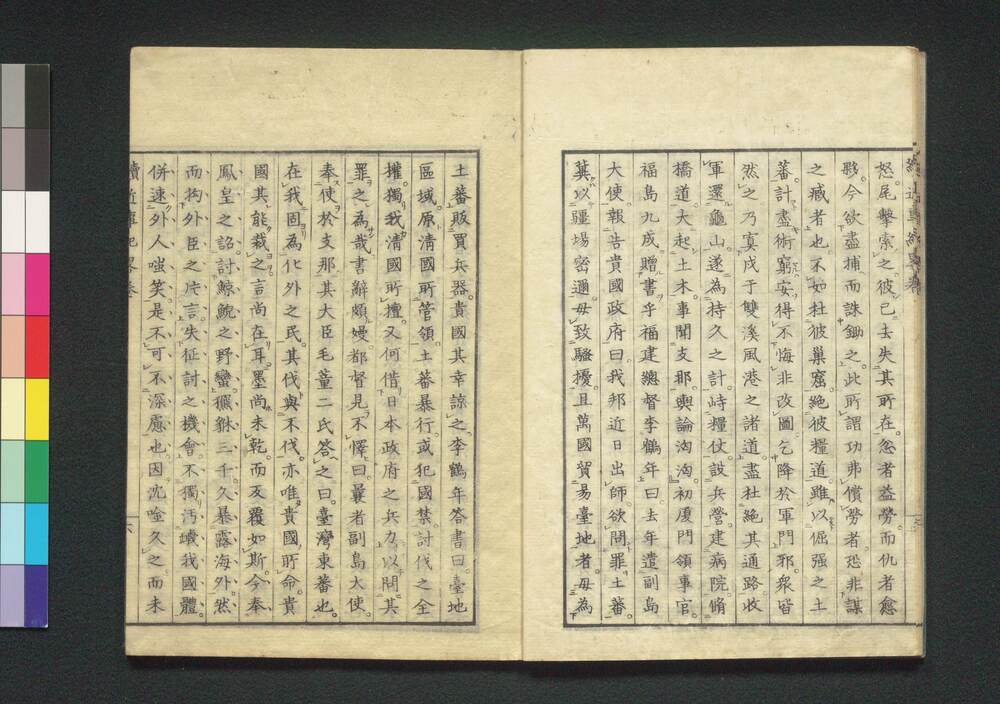 怒尾擊索之彼已去失其所在忿者益勞而仇者愈
殿今欲盡捕而誅鋤之此所謂功弗償勞者恐非謀
之臧者也不如杜彼巢窟絕彼糧道雖以倔强之土
蕃計盡術窮安得不悔非改圖乞降於軍門邪衆皆
然之乃寘戍于雙溪風港之諸道盡杜絕其通路收
軍還龜山遂為持久之計峙糧仗設兵營建病院脩
橋道大起土木事聞支那輿論洶洶初厦門領事官
福島九成贈書乎福建總督李鶴年曰去年遣副島
大使報告貴國政府曰我邦近日出師欲問罪土蕃
冀以疆場密邇毋致騷擾且萬國貿易臺地者毋為
土蕃販買兵器貴國其幸諒之李鶴年答書曰臺地
區域原清國所管領土蕃暴行或犯國禁討伐之全
權獨我清國所擅又何借日本政府之兵力以問其
罪之為哉書辭頗嫚都督見不懌曰曩者副島大使
奉使於支那其大臣毛董二氏答之曰臺灣東蕃也
在我固為化外之民其伐與不伐亦唯貴國所命貴
國其能裁之言尚在耳墨尚未乾而反覆如斯今奉
鳳皇之詔討鯨鯢之野蠻獼貅三千久暴露海外然
而拘外臣之片言失征討之機會不獨汚壞我國體
併速外人嗤笑是不可不深慮也因沈唫久之而未
續近事紀畧卷
六